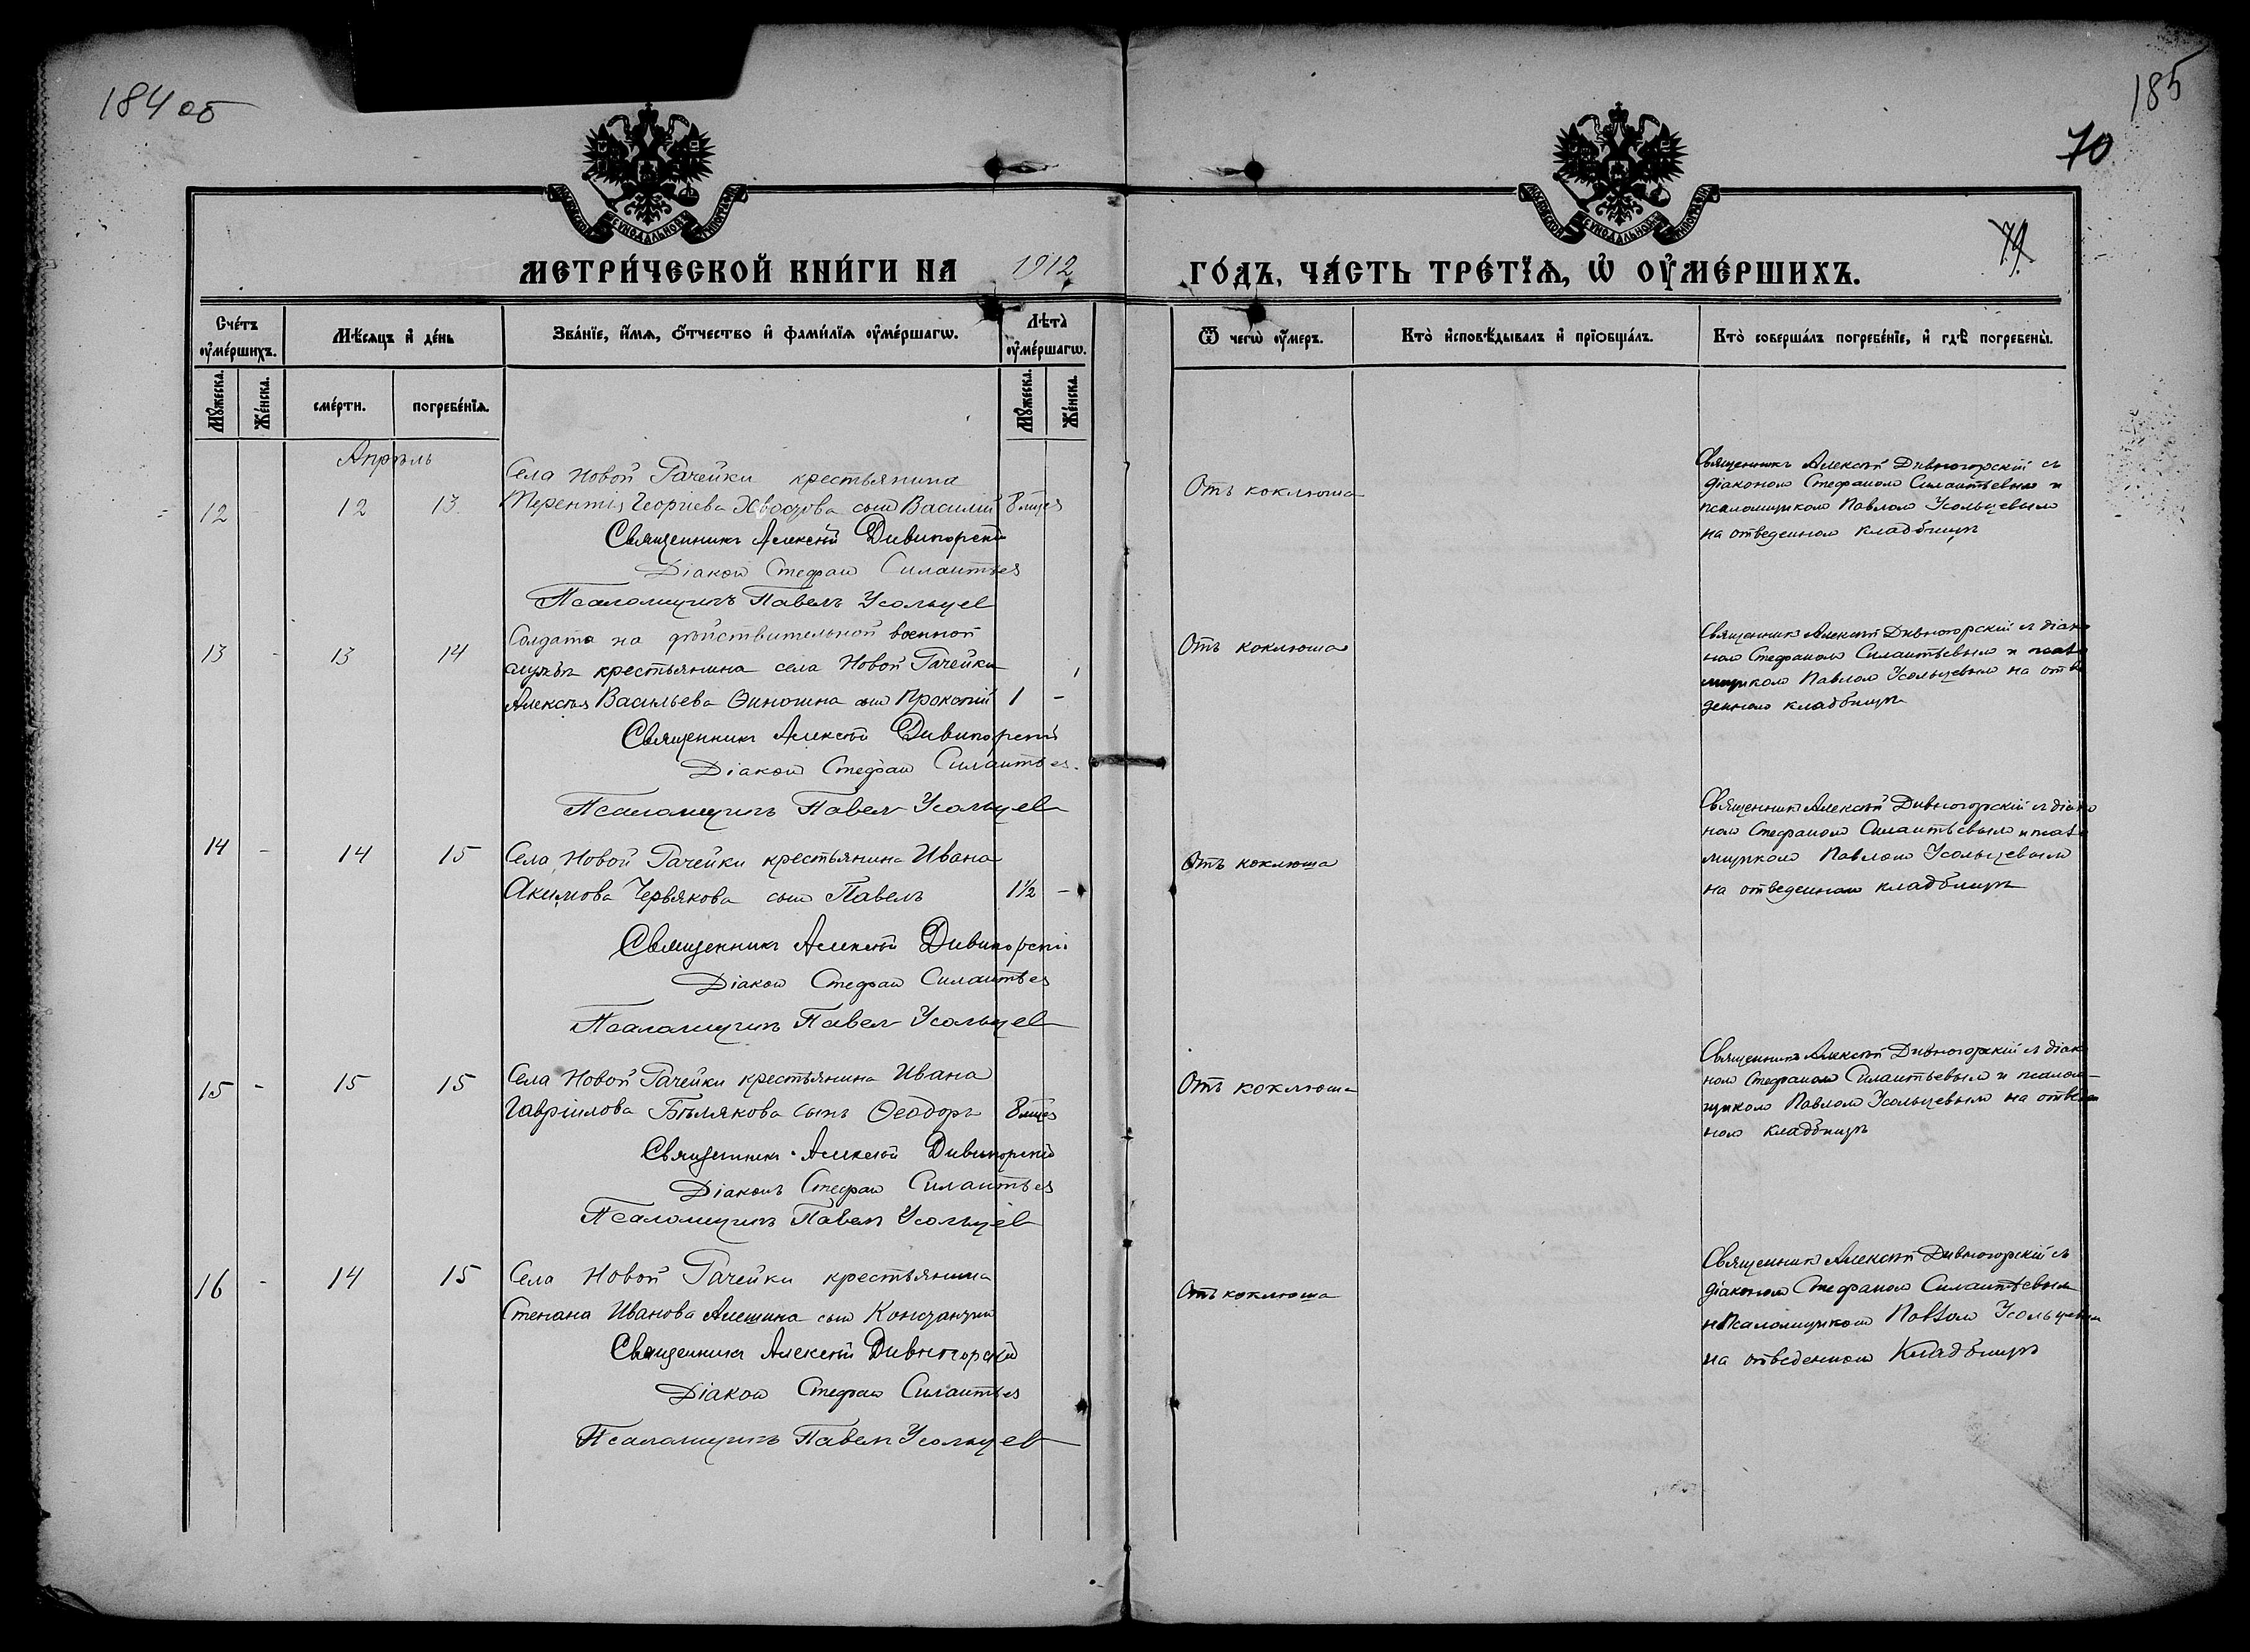 184 об
185
70
МЕТРИ́ЧЕСКОЙ КНИ́ГИ НА 1912 ГО́ДЪ, ЧА́СТЬ ТРЕ́ТЇѦ, Ѡ҆ ОУ҆МЕ́РШИХЪ.
Сче́тъ оу҆ме́ршихъ.
Мѣ́сяцъ и҆ де́нь
Зва́нїе, и҆́мѧ, о҆́тчество и҆ фами́лїѧ оу҆ме́ршагѡ.
Лѣта̀ оу҆ме́ршагѡ.
Ѿ чегѡ̀ оу҆́меръ.
Кто̀ и҆сповѣ́дывалъ и҆ прїобща́лъ.
Кто̀ соверша́лъ погребе́нїе, и҆ гдѣ̀ погребены̀.
Мꙋ́жеска.
Же́нска.
сме́рти.
погребе́нїѧ.
Мꙋ́жеска.
Же́нска.
Апрѣль
Села Новой Рачейки крестьянина
12 - 12 13 Терентія Георгіева сын Василій 8 мцев
Священникъ Алексѣй Дивногорскій
Діакон Стефан Силантьев
Псаломщикъ Павелъ Усольцев
Отъ коклюша
Священникъ Алексѣй Дивногорскій съ
діаконом Стефаном Силантьевым и
псаломщиком Павлом Усольцевым
на отведенном кладбищѣ
Солдата на дѣйствительной военной
13 - 13 14 службѣ крестьянина села Новой Рачейки
Алексѣя Васильева сын Прокопій 1 -
Священникъ Алексѣй Дивногорскій
Діакон Стефан Силантьев.
Псаломщикъ Павел Усольцев
Отъ коклюша
Священник Алексѣй Дивногорскій съ діако
ном Стефаном Силантьевым и псало
мщиком Павлом Усольцевым на отве
денном кладбищѣ
14 - 14 15 Села Новой Рачейки крестьянина Ивана
Акимова Червякова сын Павелъ 1½ -
Священникъ Алексѣй Дивногорскій
Діакон Стефан Силантьев
Псаломщикъ Павел Усольцев
Отъ коклюша
Священник Алексѣй Дивногорскій съ діако
ном Стефаном Силантьевым и псало
мщиком Павлом Усольцевым
на отведенном кладбищѣ
15 - 15 15 Села Новой Рачейки крестьянина Ивана
Гавріилова Бѣлякова сынъ Ѳеодоръ 8 мцев
Священникъ Алексѣй Дивногорскій
Діаконъ Стефан Силантьев
Псаломщикъ Павел Усольцев
Отъ коклюша
Священникъ Алексѣй Дивногорскій съ діако
ном Стефаном Силантьевым и псалом-
щиком Павлом Усольцевым на отведен
ном кладбищѣ
16 - 14 15 Села Новой Рачейки крестьянина
Степана Иванова Алешина сын
Священникъ Алексѣй Дивногорскій
Діакон Стефан Силантьев
Псаломщикъ Павел Усольцев
Отъ коклюша
Священник Алексѣй Дивногорскій съ
діаконом Стефаном Силантьевым
и псаломщиком Павлом Усольцевым
на отведенном кладбищѣ